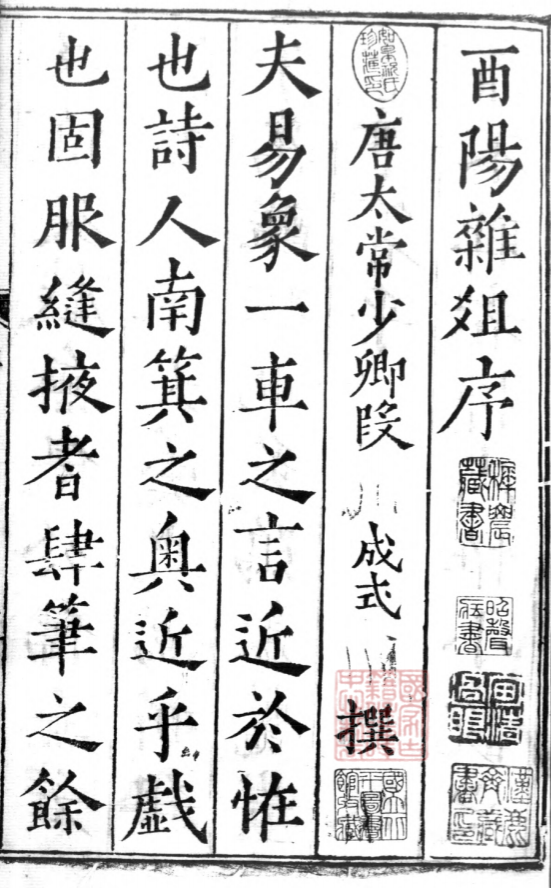 酉陽雜俎序
唐太常少卿段成式撰
夫易象一車之言近於恠
也詩人南箕之奥近乎戯
也固服縫掖者肆筆之餘